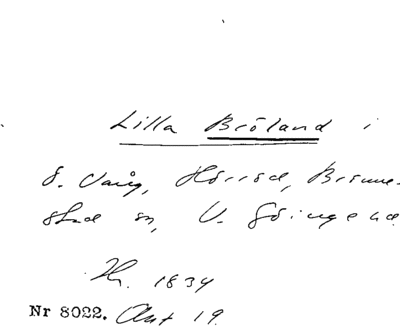 Lilla Bröland i
S. Vång, Hörröd, Brönne-
stad sn, V. Göinge hd.
Hr. 1834
Nr 8022. Akt 19.